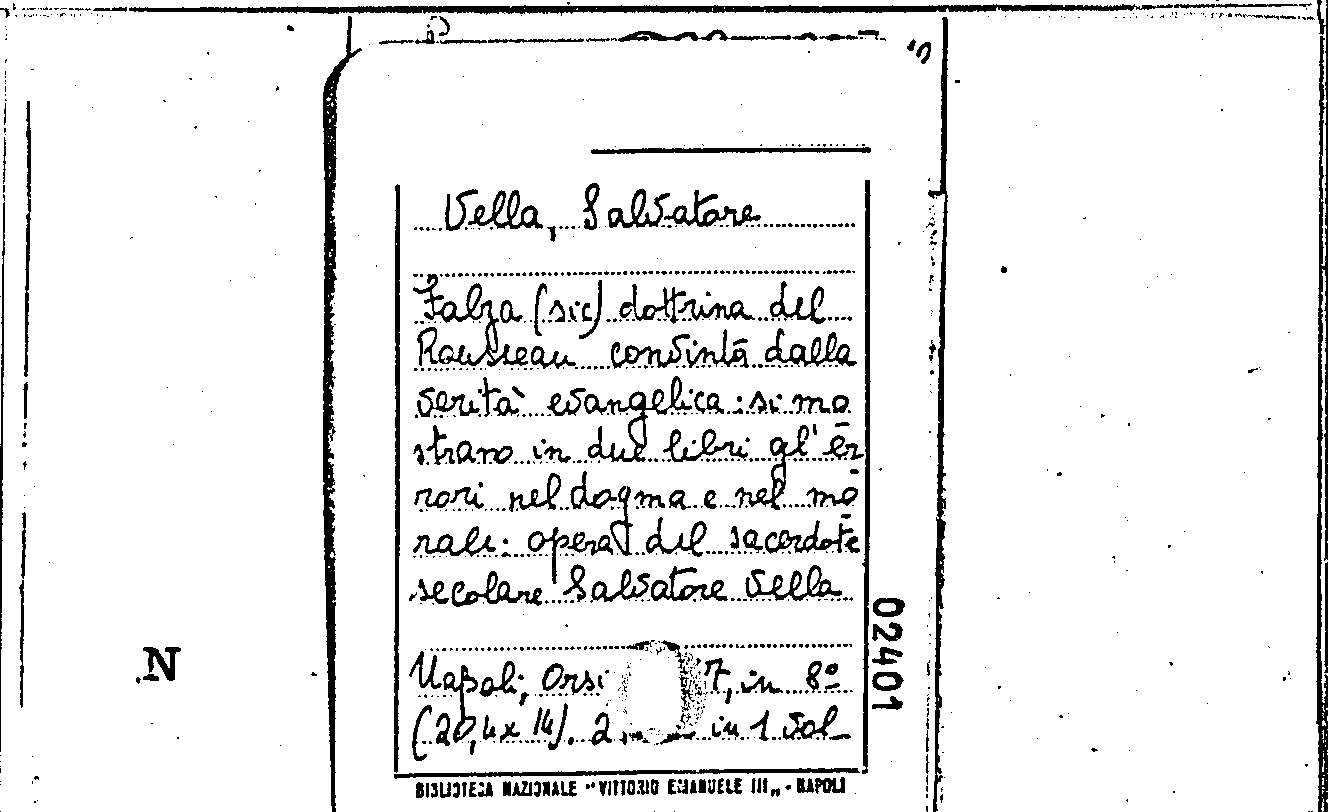 Vella, Salvatore
Falza (sic) dottrina del
Rousseau convinta dalla
verità evangelica: si mo
strano in due libri gl'er
rori nel dogma e nel mo
rale: opera del sacerdote
secolare Salvatore Vella
Napoli, Orsi 7, in 8º
(20,4x14). 2 in 1 vol
BIBLIOTECA NAZIONALE "VITTORIO EMANUELE III" - NAPOLI
02401
N